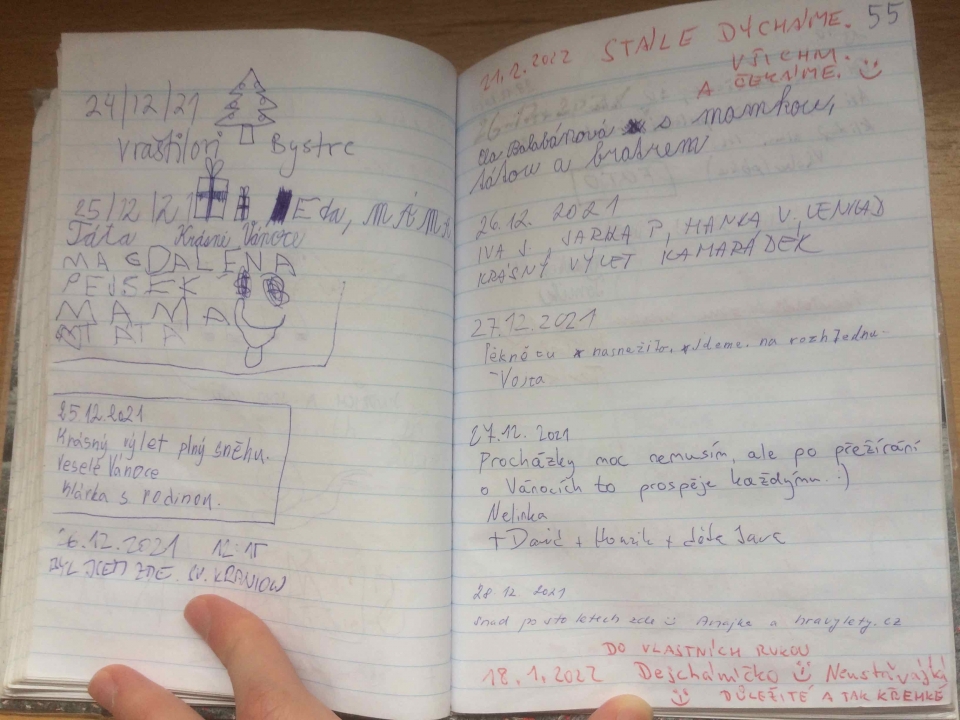 24/12/21
Vraštilori Bystrc
25/12/21 Eda, MÁMA
Táta Krásné Vánoce
MAGDALENA
PEJSEK
MAMA
TATA
25.12.2021
Krásný výlet plný sněhu.
veselé Vánoce
Klárka s rodinou.
26.12.2021 12:15
BYL JSEM ZDE.
55
21.2.2022 STÁLE DÝCHÁME.
VŠICHNI.
A ČEKÁME.
s mamkou,
tátou a bratrem
26.12. 2021
IVA J. ŠÁRKA P, HANKA V, LENKA D
KRÁSNÝ VÝLET KAMARÁDEK
27.12.2021
Pěkně tu nasnežilo. Jdeme. na rozhlednu.
-Vojta
27.12. 2021
Procházky moc nemusím, ale po přežírání
o Vánocích to prospěje každýmu :)
Nelinka
+ David + Honzík + Jára
28.12 2021
Snad po sto letech zde a hravylety.cz
DO VLASTNÍCH RUKOU
18.1.2022
DŮLEŽITÉ A TAK KŘEHKÉ